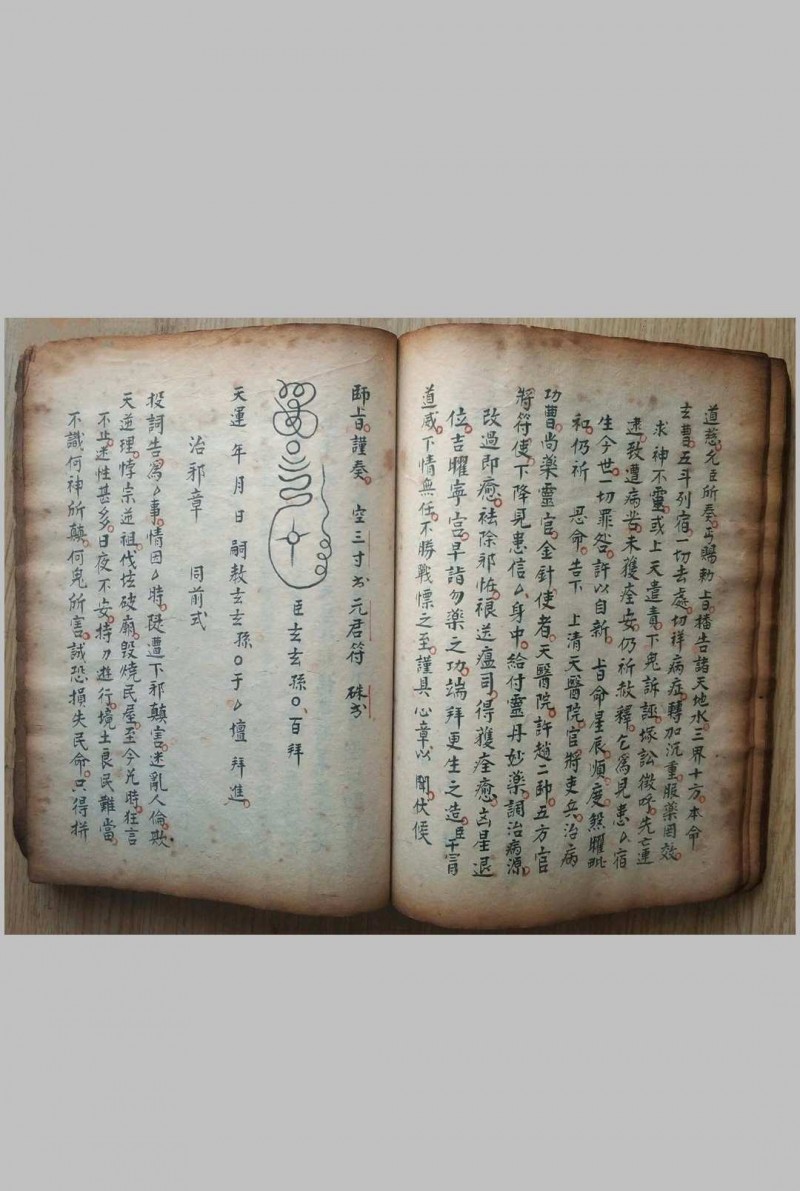 道慈允臣所奏丐賜勅旨播告諸天地水三界十方本命
玄曹五斗列宿一切去處切祥病症轉加沉重服藥罔效
求神不靈或上天遣責下鬼訴誣塚訟徵呼先亡連
逮致遭病苦未獲痊安仍祈赦釋乞為見患厶宿
生今世一切罪咎許以自新 旨命星辰順度煞曜
和仍祈 恩命告下 上清天醫院官將吏兵治病
功曹尚藥靈官金針使者天醫院許趙二帥五方官
將符使下降見患信厶身中給付靈丹妙藥調治病源
改過即癒祛除邪怪退送瘟司得獲痊癒凶星退
位吉曜寧宮早詣勿藥之功端拜更生之造臣干冒
道威下情無任不勝戰慄之至謹具心章以 聞伏候
師旨謹奏 空三寸 元君符 硃
臣玄玄孫〇百拜
天運 年 月 日 嗣教玄玄孫〇于厶壇 拜進
治邪章 同前式
投詞告為厶事情因厶時陡遭下邪顛害迷亂人倫欺
天逆理悖宗逆祖伐坛破廟毀燒民屋至今光時狂言
不止迷性甚多日夜不安持刀遊行境土良民難當
不識何神所顛何鬼所害誠恐損失民命只得拼